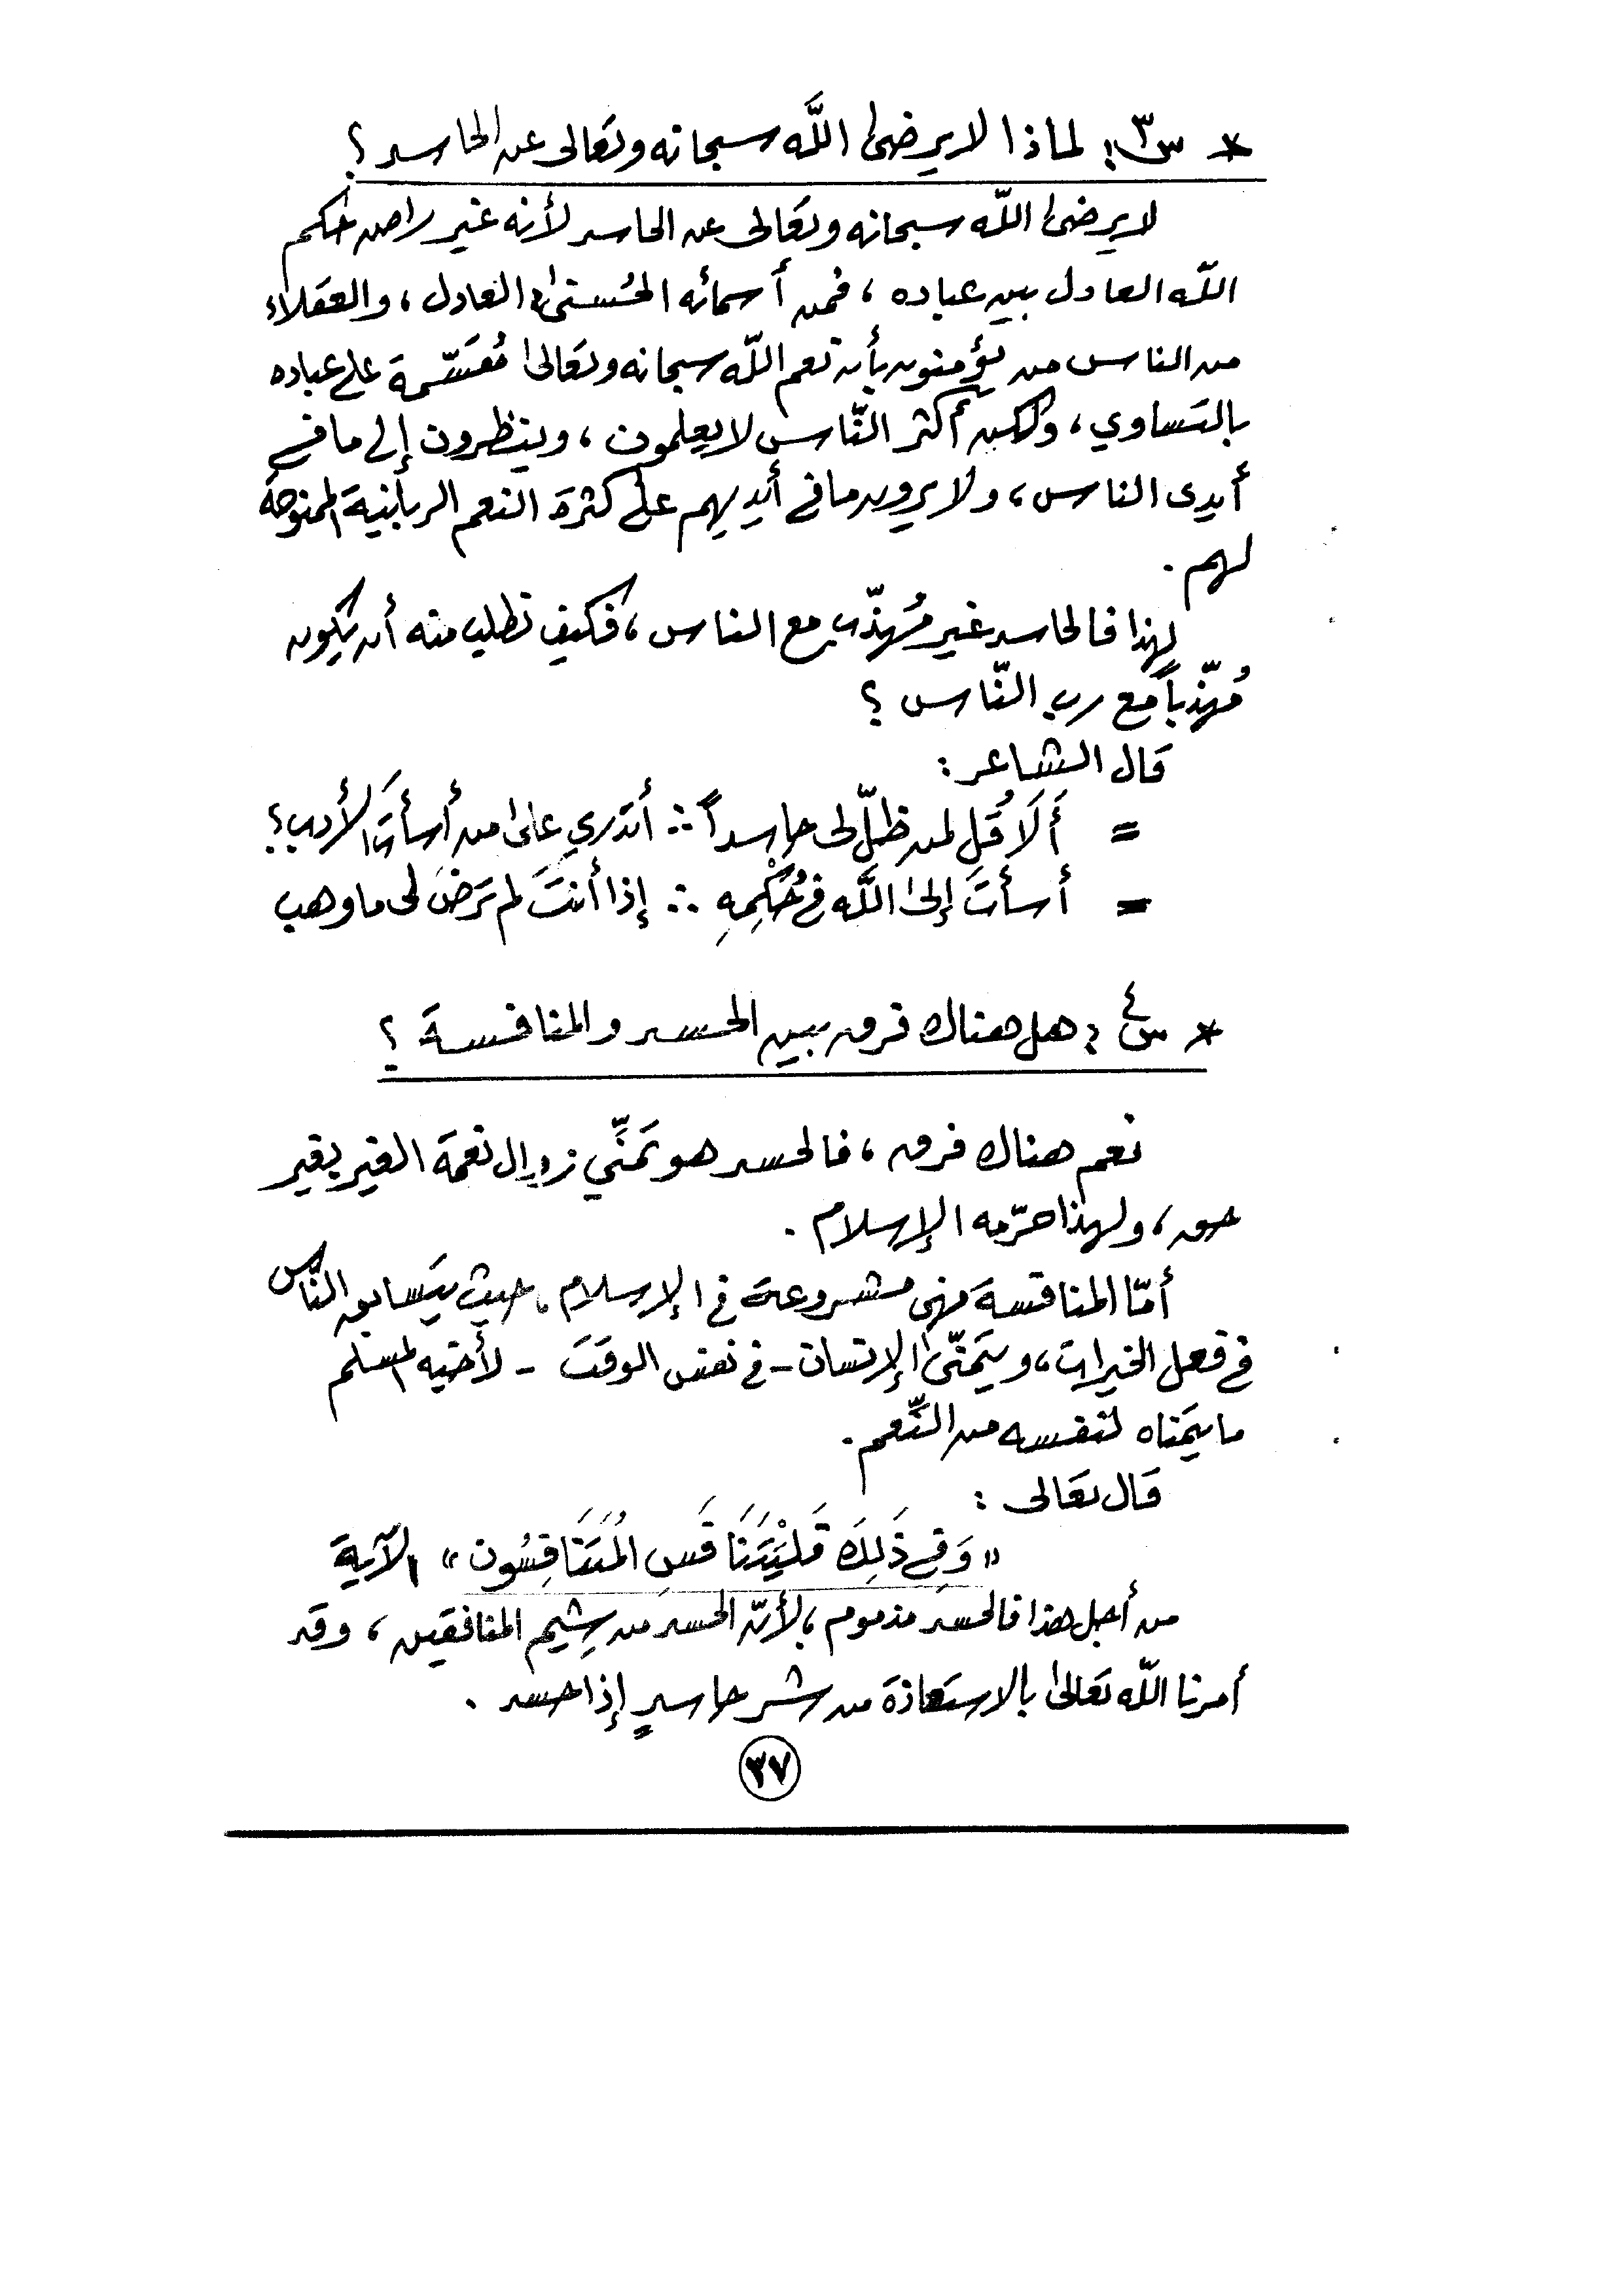 * س٣: لماذا لا يرضىٰ اللَّه سبحانه وتعالى عن الحاسد؟
لا يرضىٰ اللّه سبحانه وتعالى عن الحاسد لأنه غير راضٍ بحكم
اللّه العادل بين عباده، فمن أسمائه الحُسنىٰ: العادل، والعقلاء
من الناس من يؤمنون بأن نعم اللّه سبحانه وتعالىٰ مُقسّمة على عباده
بالتساوي، ولكن أكثر النّاس لا يعلمون، وينظرون إلى ما في
أيدى الناس، ولا يرون ما في أيديهم على كثرة النعم الربانية الممنوحة
لهم.
لهذا فالحاسد غير مُهذّب مع الناس، فكيف تطلب منه أن يكون
مُهذّباً مع رب النّاس؟
قال الشاعر:
= أَلَا قُل لمن ظلّ لى حاسداً ∴ أتدري علىٰ من أسأتَ الأدب؟
= أسأتَ إلىٰ اللَّه في حُكْمِهِ ∴ إذا أنتَ لم تَرضَ لى ما وهب
* س٤: هل هناك فرق بين الحسد والمنافسة؟
نعم هناك فرق، فالحسد هو تمنِّي زوال نعمة الغير بغير
حق، ولهذا حرّمه الإسلام.
أمّا المنافسة فهى مشروعة في الإسلام، حيث يتسابق النّاس
في فعل الخيرات، ويتمنّىٰ الإنسان - في نفس الوقت - لأخيه المسلم
ما يتمناه لنفسه من النِّعم.
قال تعالى:
«وَفِي ذَلِكَ فَلْيَتَنَافَسِ الْمُتَنَافِسُون» الآية
من أجل هذا فالحسد مذموم، لأنّ الحسد من شِيم المنافقين، وقد
أمرنا اللّه تعالىٰ بالاستعاذة من شر حاسدٍ إذا حسد.
٣٧